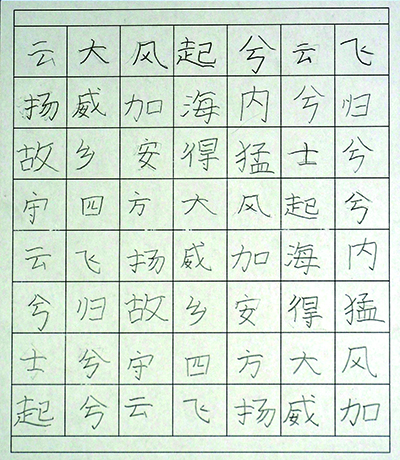 云大风起兮云飞
扬威加海内兮归
故乡安得猛士兮
守四方大风起兮
云飞扬威加海内
兮归故乡安得猛
士兮守四方大风
起兮云飞扬威加